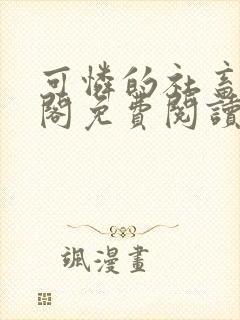 可憐的社畜
閣免費閱讀
颯漫畫